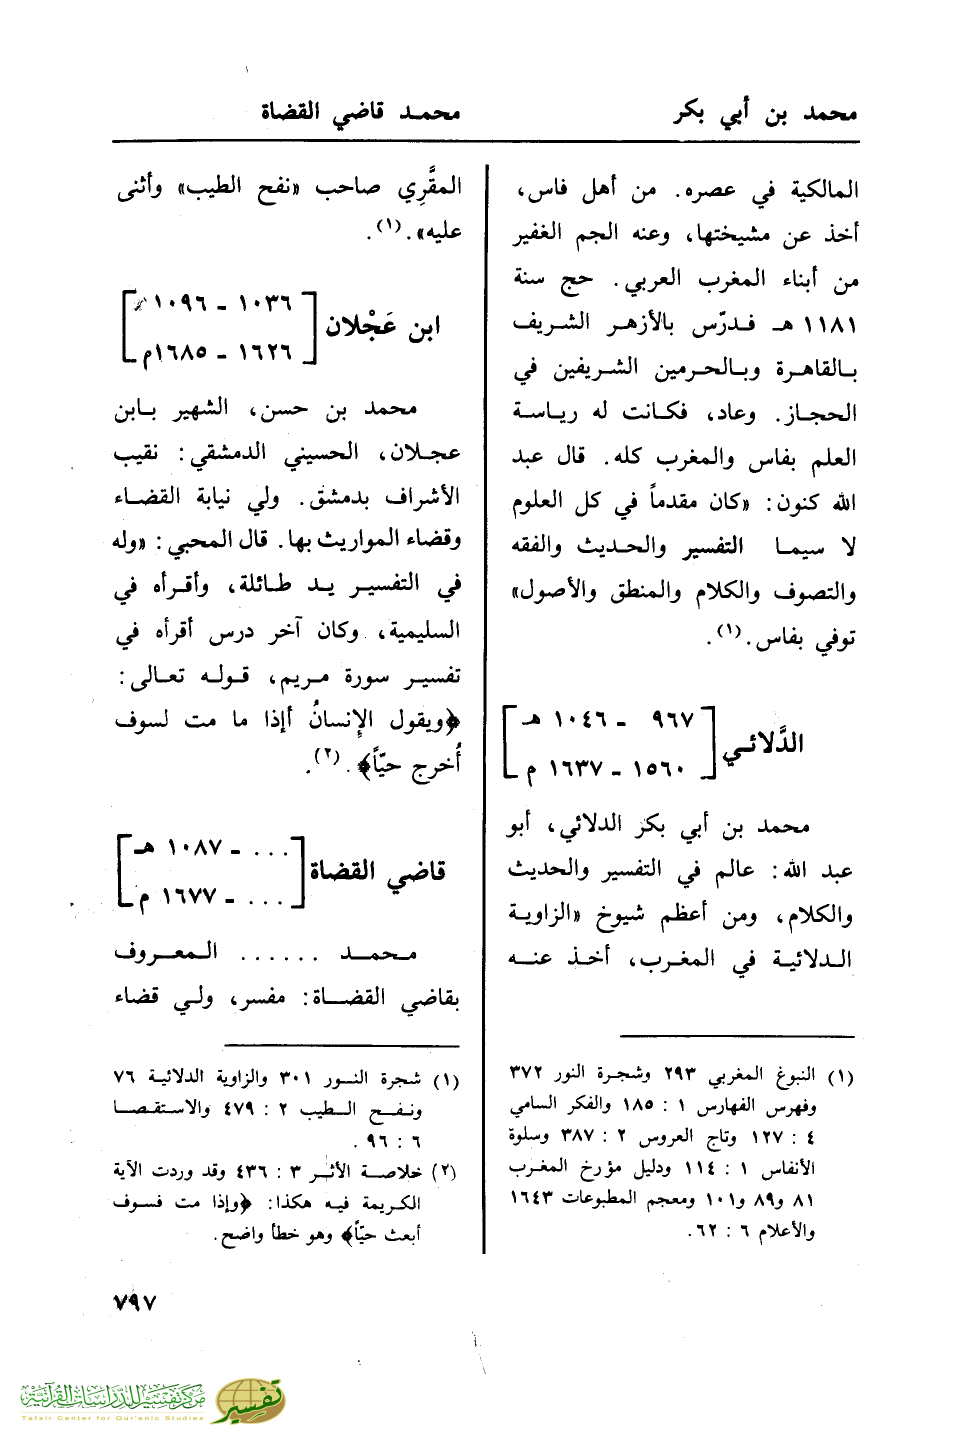 محمد بن أبي بكر
محمد قاضي القضاة
المالكية في عصره. من أهل فاس،
أخذ عن مشيختها، وعنه الجم الغفير
من أبناء المغرب العربي. حج سنة
١١٨١ هـ فدرّس بالأزهر الشريف
بالقاهرة وبالحرمين الشريفين في
الحجاز. وعاد، فكانت له رياسة
العلم بفاس والمغرب كله. قال عبد
الله كنون: «كان مقدماً في كل العلوم
لا سيما التفسير والحديث والفقه
والتصوف والكلام والمنطق والأصول»
توفي بفاس.(١).
الدَّلائي
[٩٦٧ - ١٠٤٦ هـ
١٥٦٠ - ١٦٣٧ م]
محمد بن أبي بكر الدلائي، أبو
عبد الله: عالم في التفسير والحديث
والكلام، ومن أعظم شيوخ «الزاوية
الدلائية في المغرب، أخذ عنه
(١) النبوغ المغربي ٢٩٣ وشجرة النور ٣٧٢
وفهرس الفهارس ١ : ١٨٥ والفكر السامي
٤ : ١٢٧ وتاج العروس ٢ : ٣٨٧ وسلوة
الأنفاس ١ : ١١٤ ودليل مؤرخ المغرب
٨١ و٨٩ و١٠١ ومعجم المطبوعات ١٦٤٣
والأعلام ٦ : ٦٢.
المقَّرِي صاحب «نفح الطيب» وأثنى
عليه».(١).
ابن عَجْلان
[١٠٣٦ - ١٠٩٦ هـ
١٦٢٦ - ١٦٨٥م]
محمد بن حسن، الشهير بابن
عجلان، الحسيني الدمشقي: نقيب
الأشراف بدمشق. ولي نيابة القضاء
وقضاء المواريث بها. قال المحبي: «وله
في التفسير يد طائلة، وأقرأه في
السليمية، وكان آخر درس أقرأه في
تفسير سورة مريم، قوله تعالى:
﴿ويقول الإنسانُ أإذا ما مت لسوف
أُخرج حيّاً﴾.(٢).
قاضي القضاة
[... - ١٠٨٧ هـ
... - ١٦٧٧ م]
محمد ...... المعروف
بقاضي القضاة: مفسر، ولي قضاء
(١) شجرة النور ٣٠١ والزاوية الدلائية ٧٦
ونفح الطيب ٢ : ٤٧٩ والاستقصا
٦ : ٩٦ .
(٢) خلاصة الأثر ٣ : ٤٣٦ وقد وردت الآية
الكريمة فيه هكذا: ﴿وإذا مت فسوف
أبعث حيّاً﴾ وهو خطأ واضح.
٧٩٧
مركز تفسير للدراسات القرآنية
Tafsir Center for Qur'anic Studies
تفسير